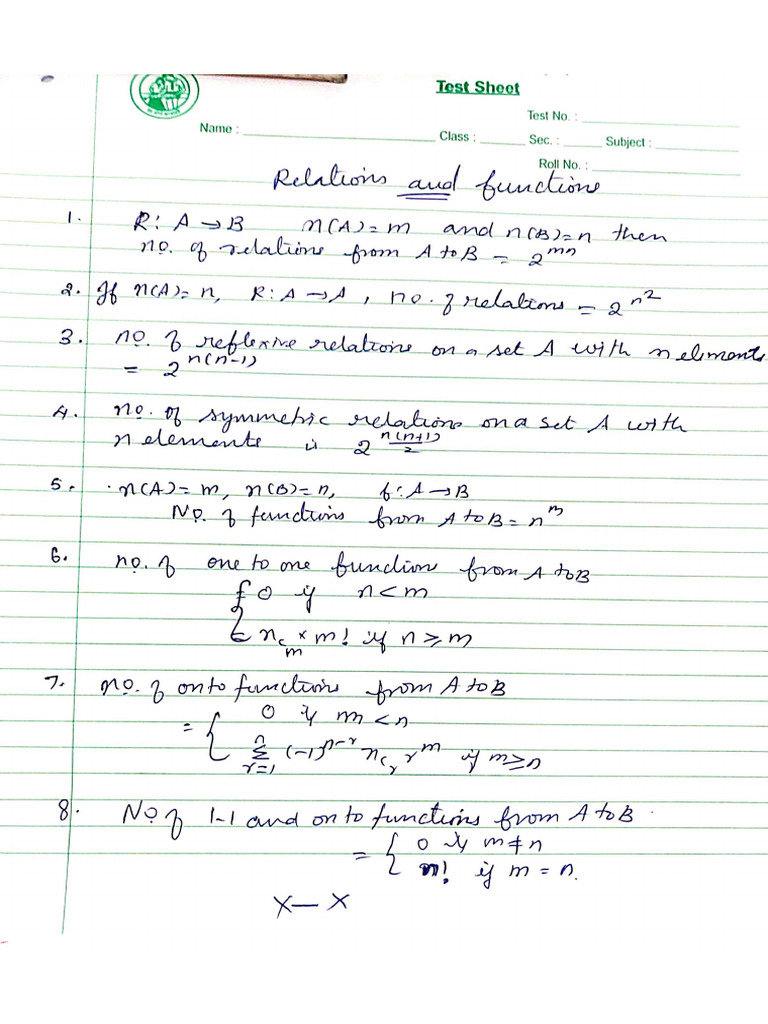 Test Sheet
Test No. : ____________
Name : ____________ Class : ______ Sec. : ______ Subject : ____________
Roll No. : ____________
Relations and functions
1. R: A → B n(A) = m and n(B) = n then
no. of relations from A to B = 2^{mn}
2. If n(A) = n, R: A → A, no. of relations = 2^{n^2}
3. no. of reflexive relations on a set A with n elements
= 2^{n(n-1)}
4. no. of symmetric relations on a set A with
n elements is 2^{\frac{n(n+1)}{2}}
5. n(A) = m, n(B) = n, f: A → B
No. of functions from A to B = n^m
6. no. of one to one function from A to B
{ 0 if n < m
{ n_{c_m} × m! if n ≥ m
7. no. of onto functions from A to B
= { 0 if m < n
{ \sum_{r=1}^{n} (-1)^{n-r} n_{c_r} r^m if m ≥ n
8. No of 1-1 and onto functions from A to B
= { 0 if m ≠ n
{ n! if m = n.
X — X